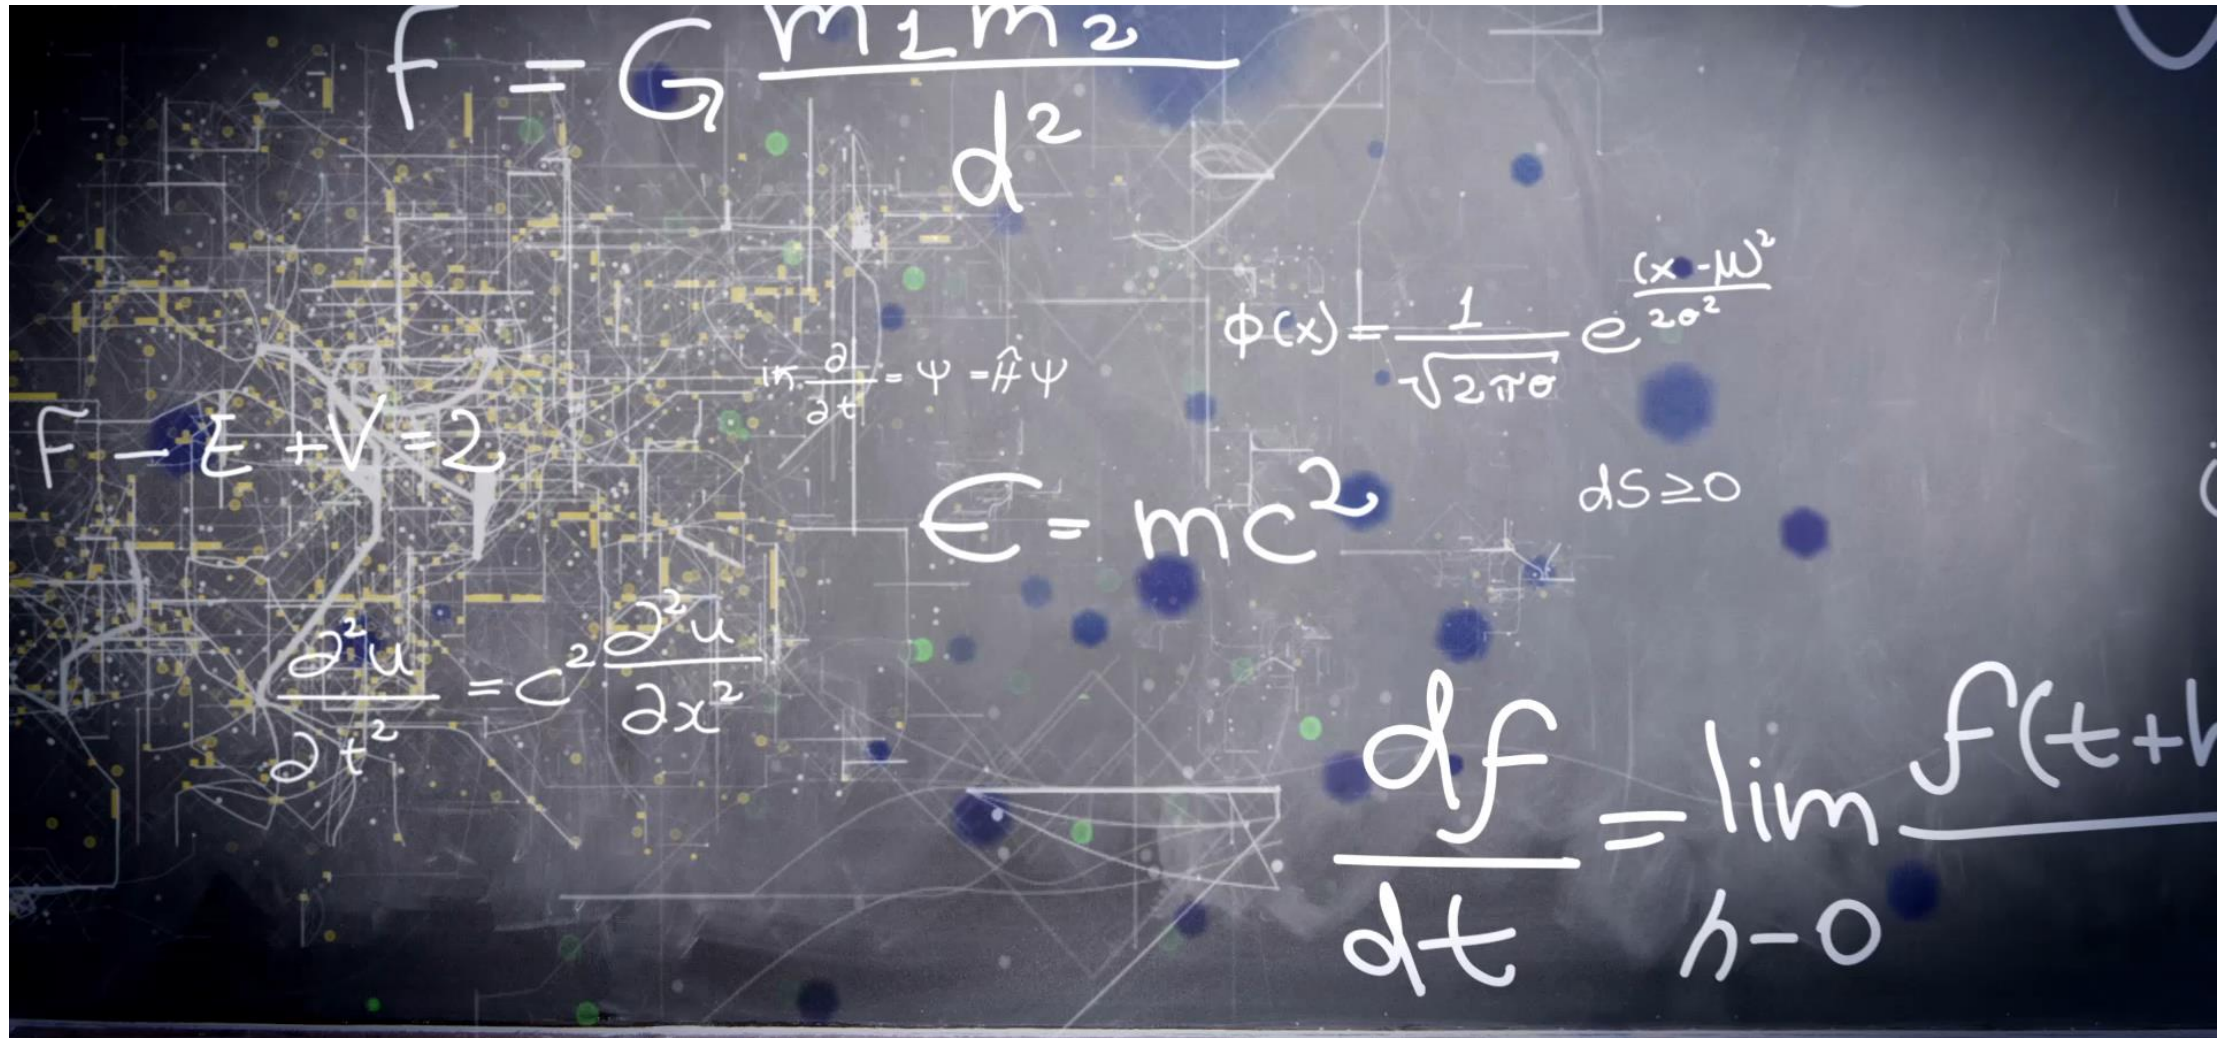 F = G m1m2 / d²
ϕ(x) = 1 / √2πσ e (x-μ)² / 2σ²
iħ ∂ / ∂t = Ψ = ĤΨ
F - E + V = 2
E = mc²
dS ≥ 0
∂²u / ∂t² = c² ∂²u / ∂x²
df / dt = lim h-0 f(t+h